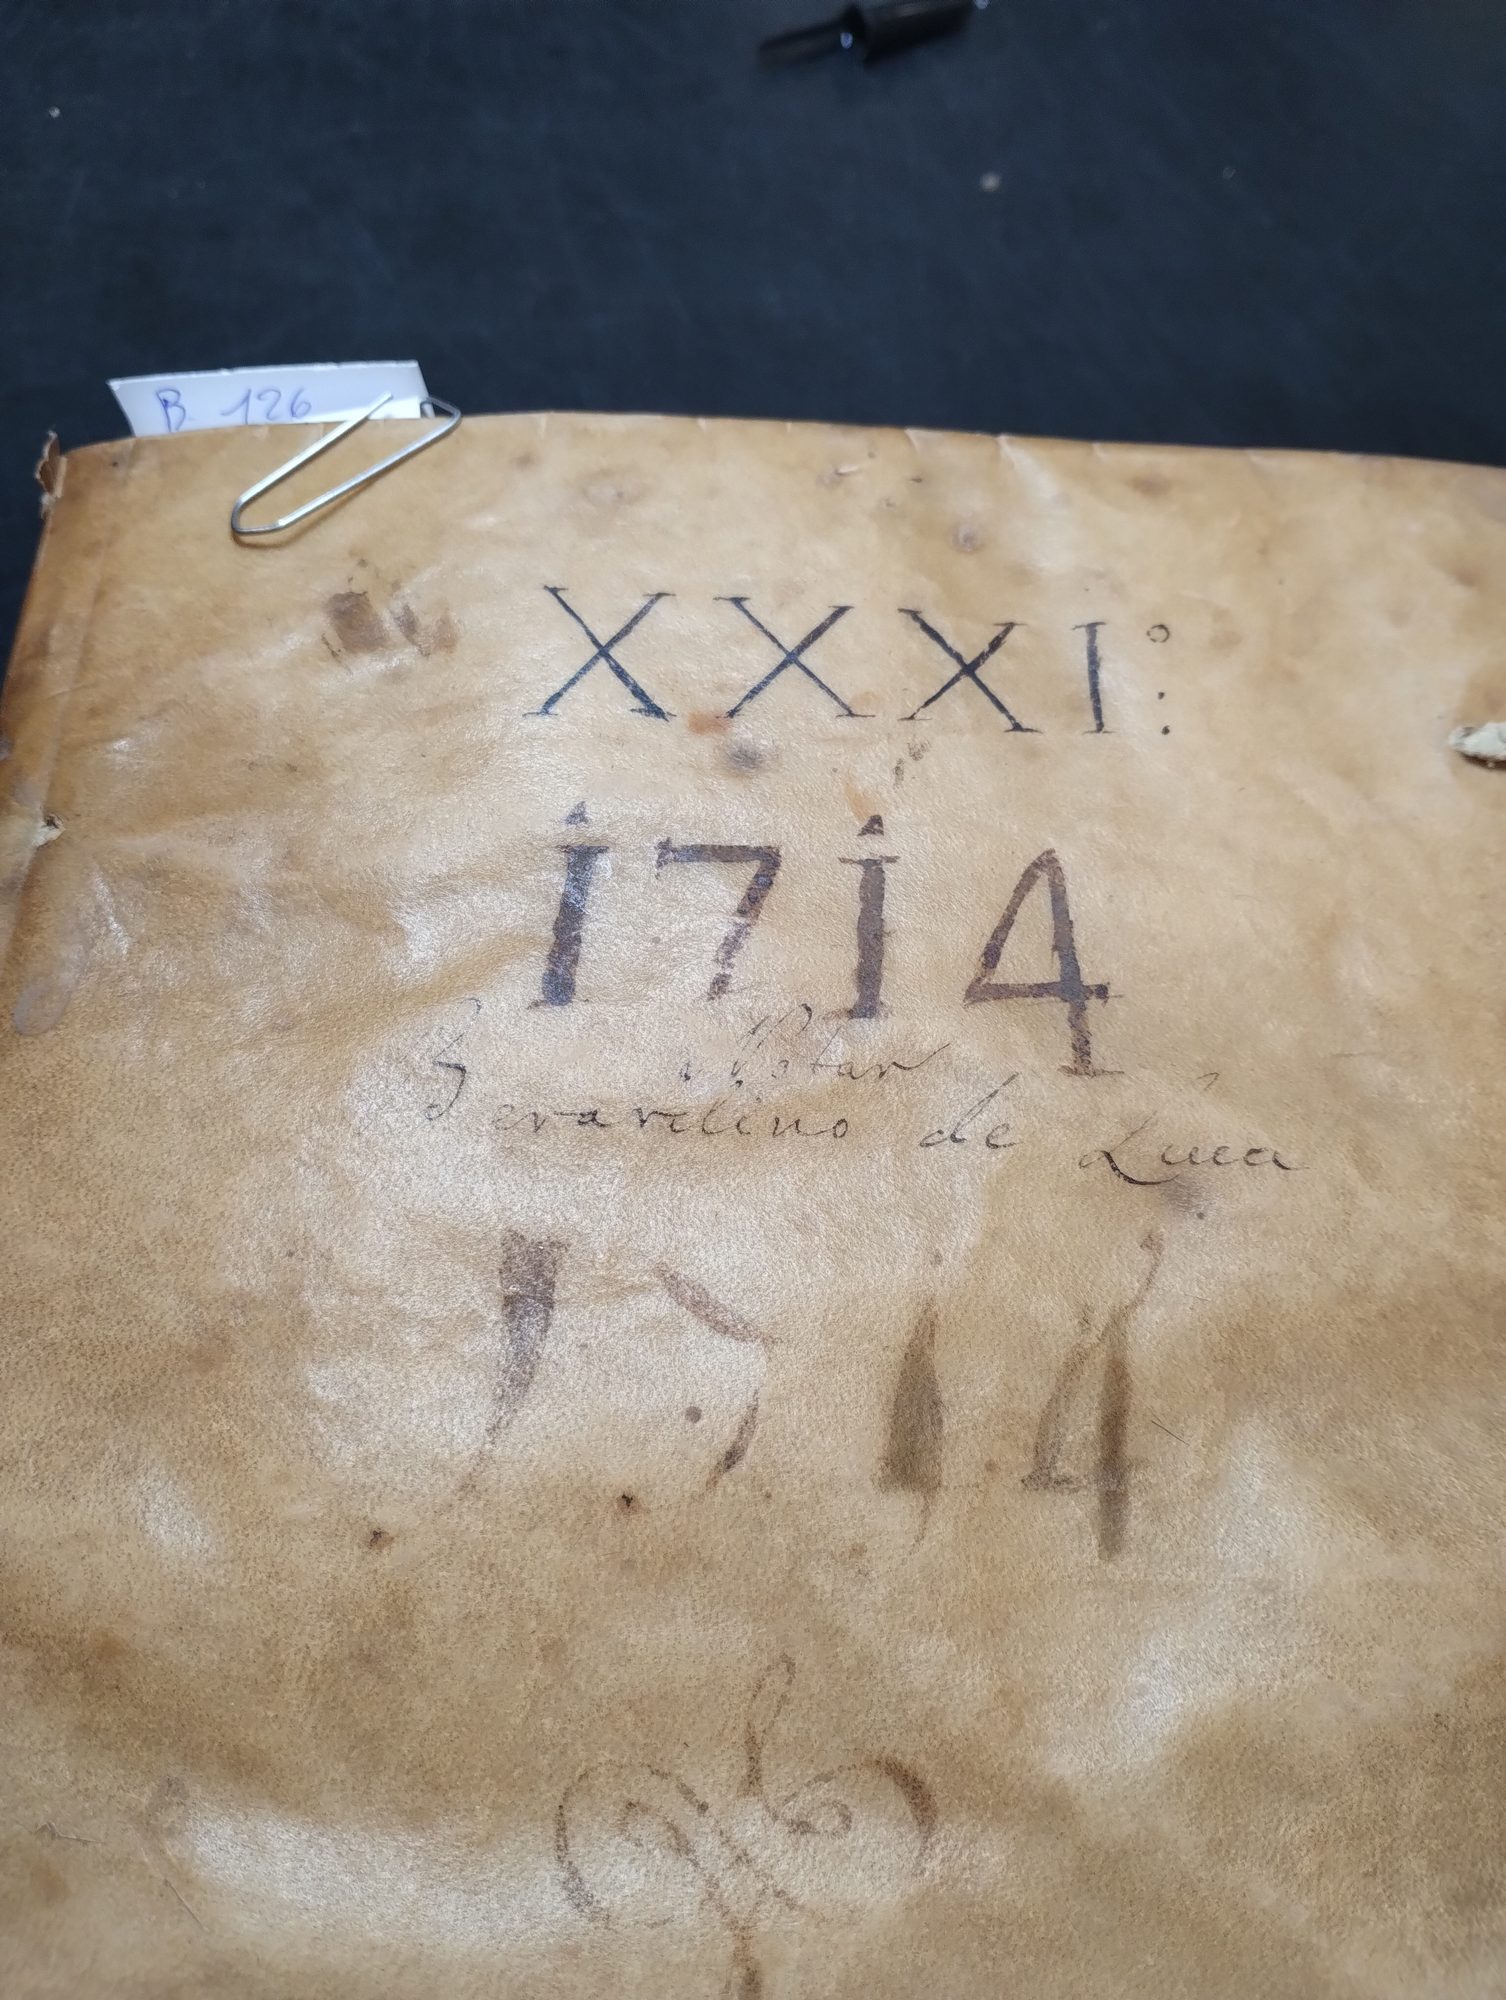 B. 126
XXXI:°
1714
Notar
Berardino de Luca
1714